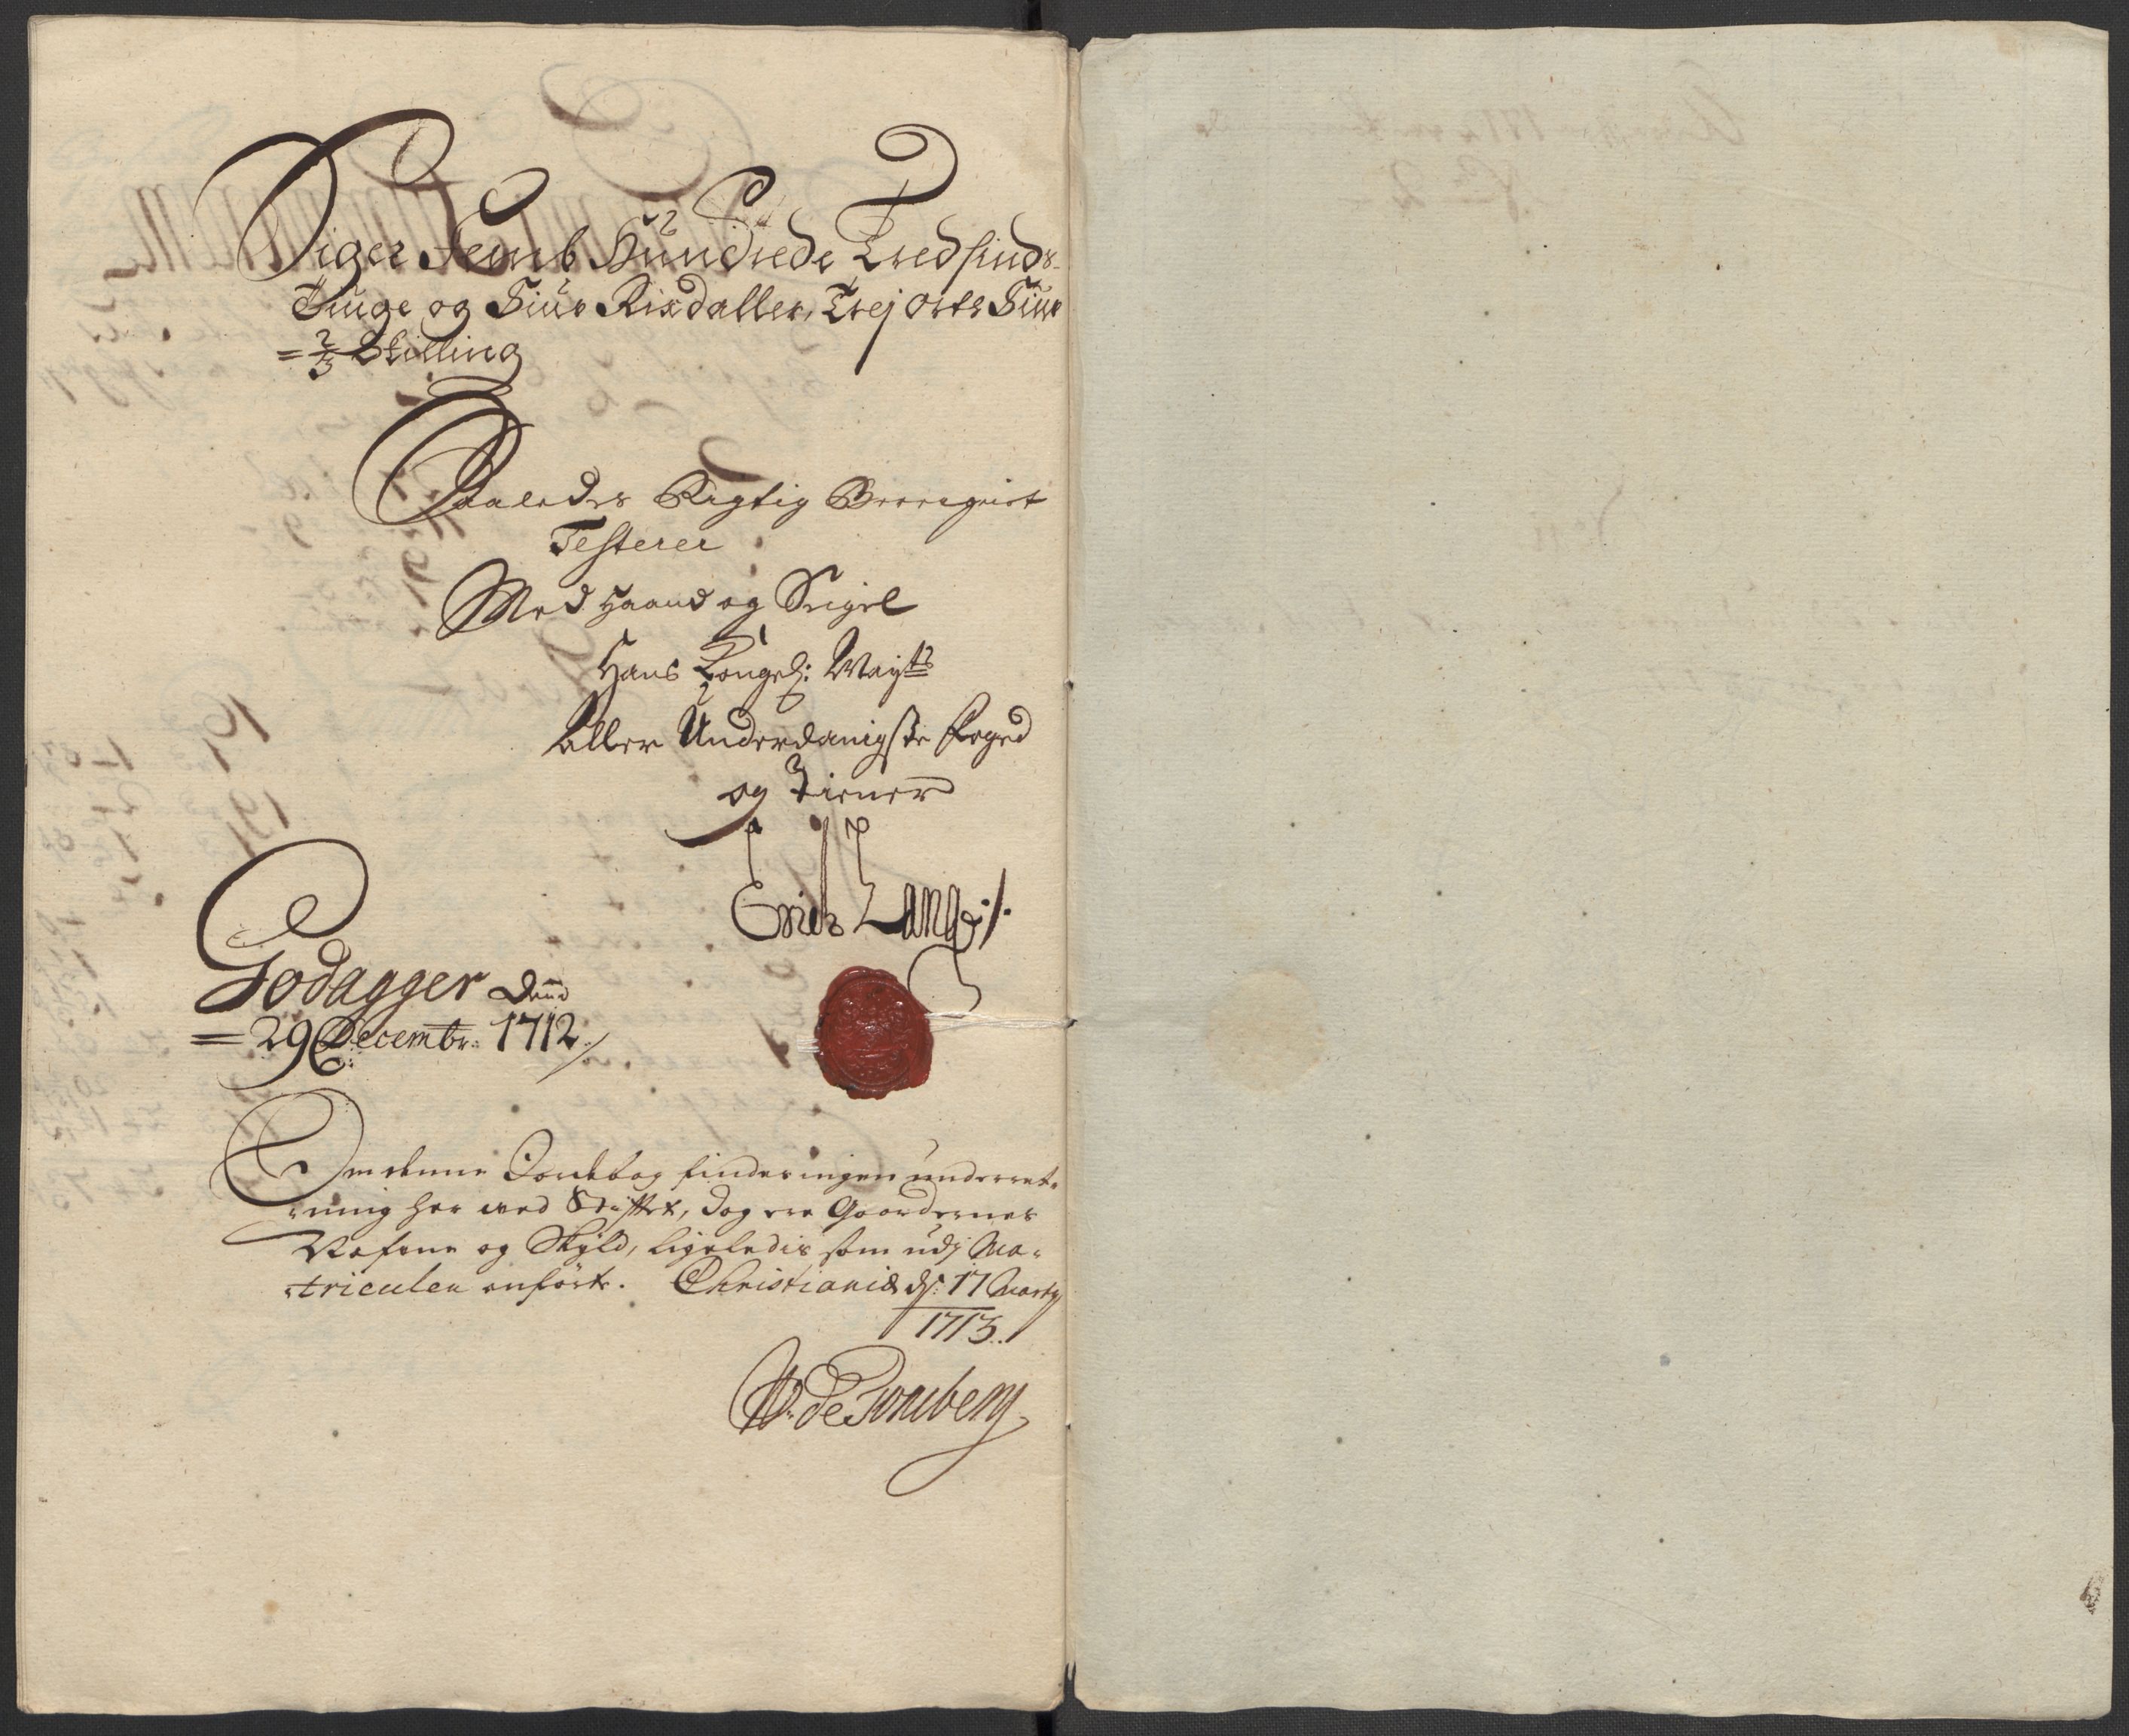 Siger Femb Hundrede Tredsinds-
Tiuge og Fiur Rixdaller, Trej Orts Fiur
= 2/3 Skilling
Saaledes Rigtig Bereignet
Testerer
Med Haand og Seigel
Hans Kongel: Mayts
Aller Underdanigste Foged
og Tiener
Erich Lange ./.
Godagger dend
= 29 Decembr: 1712 ./
Om denne Jordebog findes ingen underret-
ning her ved Stiftet, dog ere Gaardernes
Nafne og Skyld, ligeledis som udj Ma-
triculen anførte. Christiania ds: 17 Marty
1713.
W. de Tonsberg